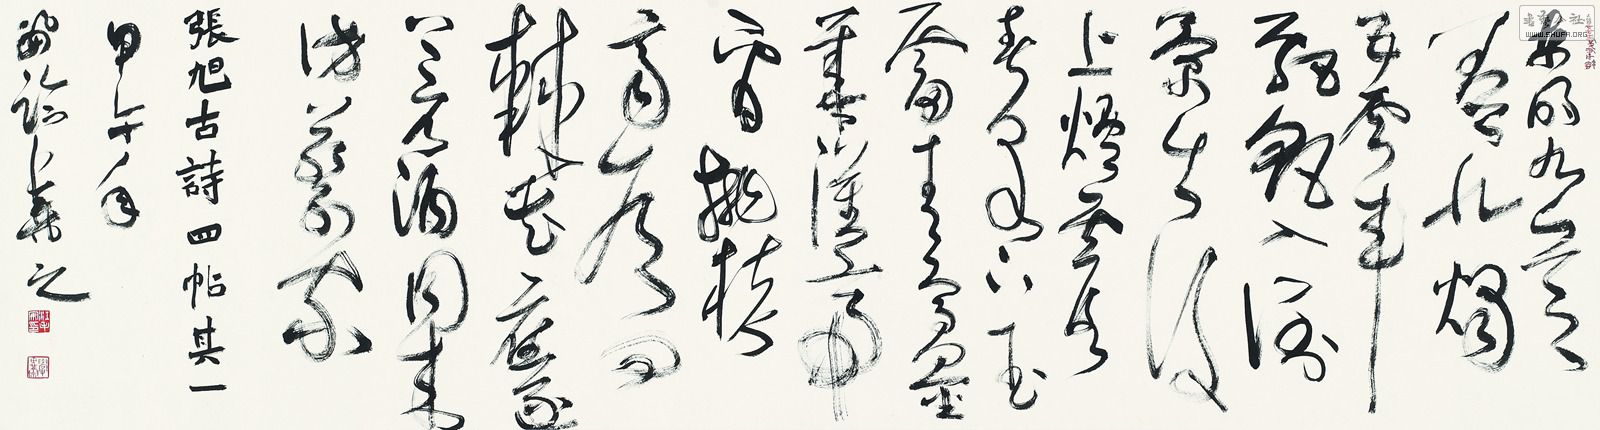 東明九芝
蓋北燭
五雲車
飄颻入倒
景出沒
上煙霞
春泉下玉
霤青鳥向金
華漢帝
看桃核
齊侯問
棘花應逐
上元酒同來
訪蔡家
張旭古詩四帖其一
甲午年
书法公社
WWW.SHUFA.ORG